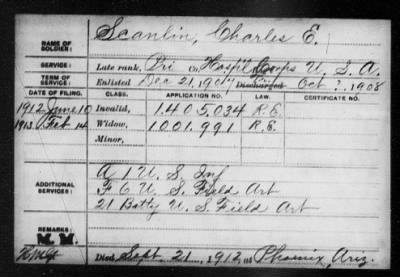 NAME OF SOLDIER: Scanlin, Charles E.
SERVICE: Late rank, Pri Co. Hosp'l Corps U. S. A.
TERM OF SERVICE: Enlisted Dec 21, 1907 Discharged Oct ?, 1908
DATE OF FILING. CLASS. APPLICATION NO. LAW. CERTIFICATE NO.
1912 June 10 Invalid, 1.405.034 R.E.
1913 Feb 14 Widow, 1001.991 R.E.
Minor,
ADDITIONAL SERVICES:
A 1 U. S. Inf
F 6 U. S. Field Art
21 Batty U. S. Field Art
REMARKS:
Died Sept. 21, 1912, at Phoenix, Ariz.